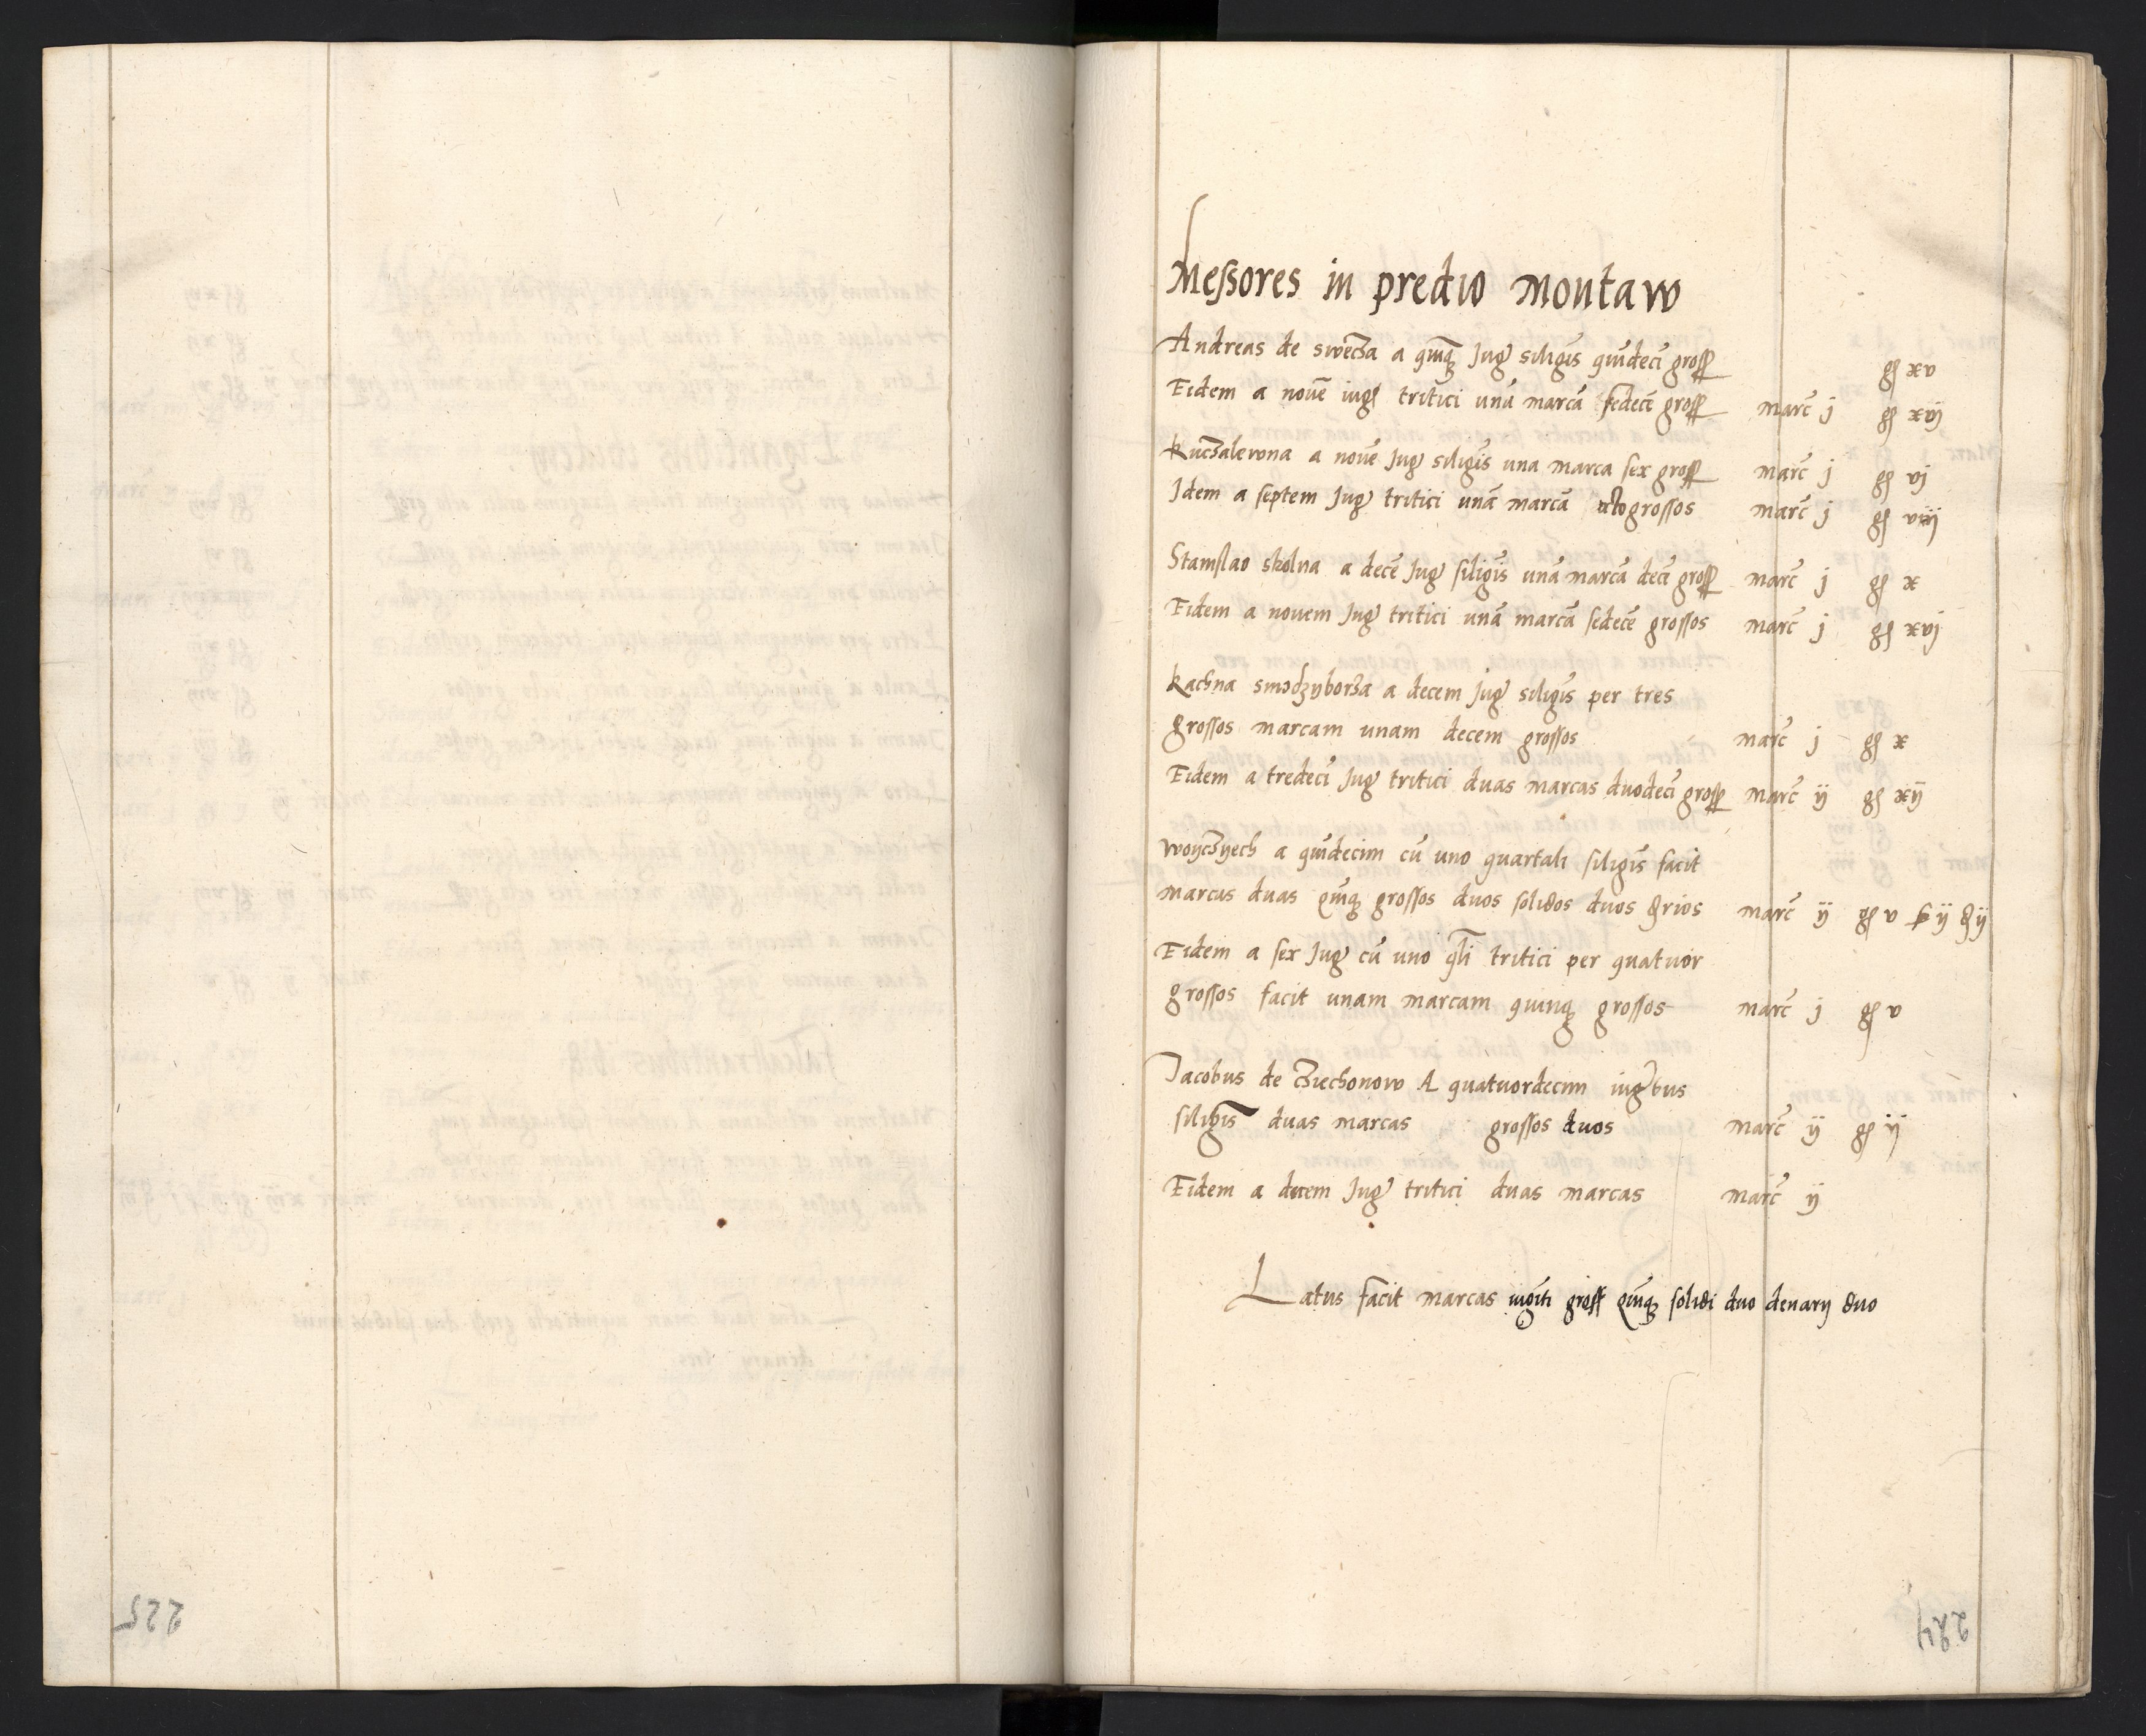 Messores in predio Montaw
Andreas de swecza a quinq Jug siligis quideci gross gs xv
Eidem a novē iugs tritici unā marcā sedecī gross marc j gs xvj
Kuczalewna a nouē Jug siligis una marca sex gross marc j gs vj
Idem a septem Jug tritici unā marcā octo grossos marc j gs viij
Stanislao skolna a decē Jug siligis unā marcā decī gross marc j gs x
Eidem a novem Jug tritici unā marcā sedecē grossos marc j gs xvj
Kachna smodzyborza a decem Jug siligis per tres
grossos marcam unam decem grossos marc j gs x
Eidem a tredecī Jug tritici duas marcas duodecī gross marc ij gs xij
woyczyech a quīdecim cū uno quartali siligis facit
marcas duas qūiq grossos duos solidos duos drios marc ij gs v ß ij d ij
Eidem a sex Jug cū uno qli tritici per quatuor
grossos facit unam marcam quinq grossos marc j gs v
Jacobus de cziechonow A quatuordecim iugbus
siligis duas marcas grossos duos marc ij gs ij
Eidem a decem Jug tritici duas marcas marc ij
Latus facit marcas vigīti gross qūiq solidi duo denarij duo
225
224